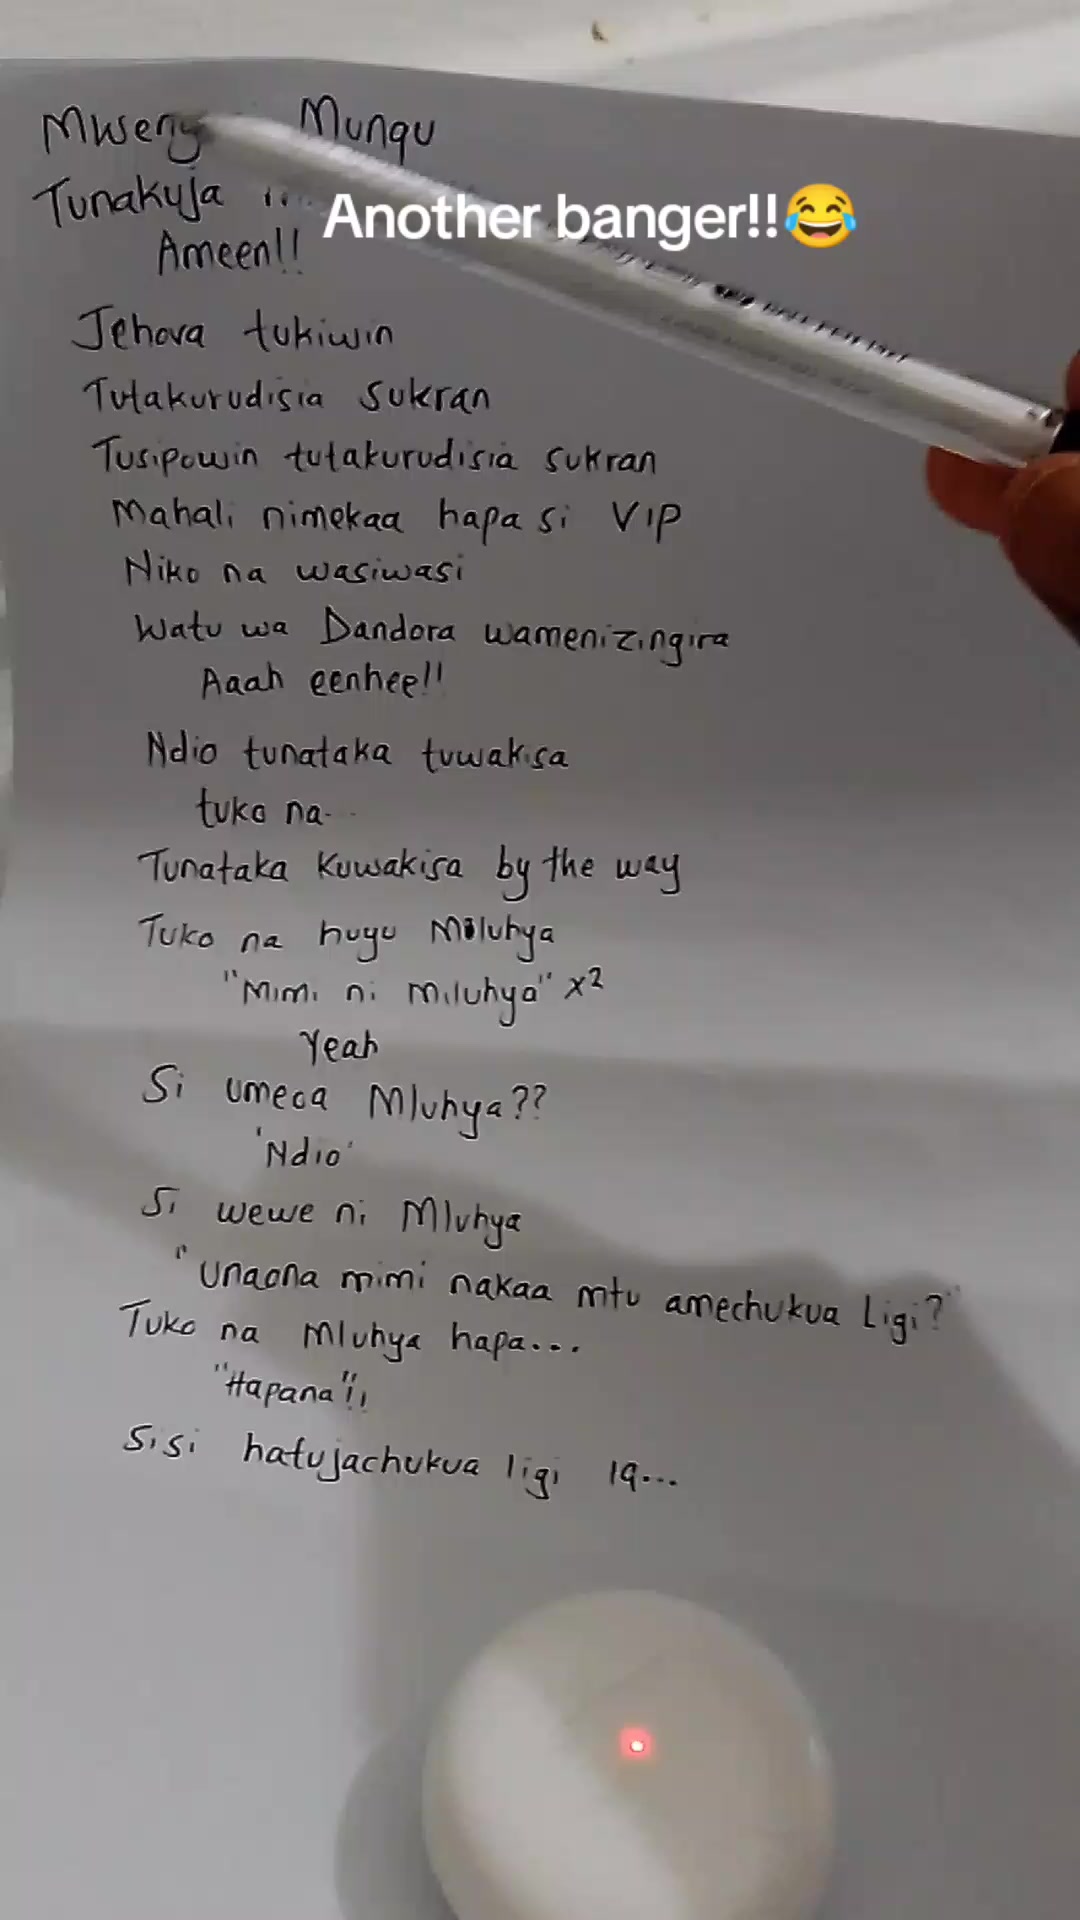 Mwenye Mungu
Tunakuja ...
Ameen!!
Another banger!!😂
Jehova tukiwin
Tutakurudisia sukran
Tusipowin tutakurudisia sukran
Mahali nimekaa hapa si VIP
Niko na wasiwasi
Watu wa Dandora wamenizingira
Aaah eenhee!!
Ndio tunataka tuwakisa
tuko na...
Tunataka kuwakisa by the way
Tuko na huyu Miluhya
"Mimi ni Miluhya" x2
Yeah
Si umeoa Mluhya??
'Ndio'
Si wewe ni Mluhya
"Unaona mimi nakaa mtu amechukua Ligi?"
Tuko na Mluhya hapa...
"Hapana"!!
Sisi hatujachukua ligi 19...